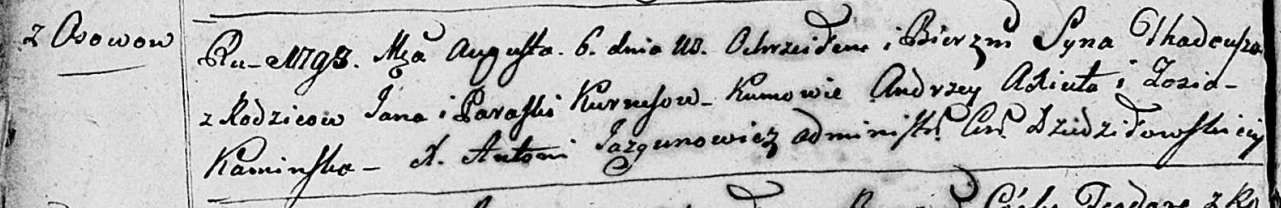 z Osowow
Ru_ 1793. Mca Augusta. 6. dnia us. Ochrzciłem i Bierzm Syna Thadeusza
z Rodzicow Jana i Paraski Kurnesow_ Kumowie Andrzey Axiuta i Zosia_
Kaminska_ X. Antoni Jazgunowicz administr Cer. Dziedziłowskiey
Corke Teodorę z Ro